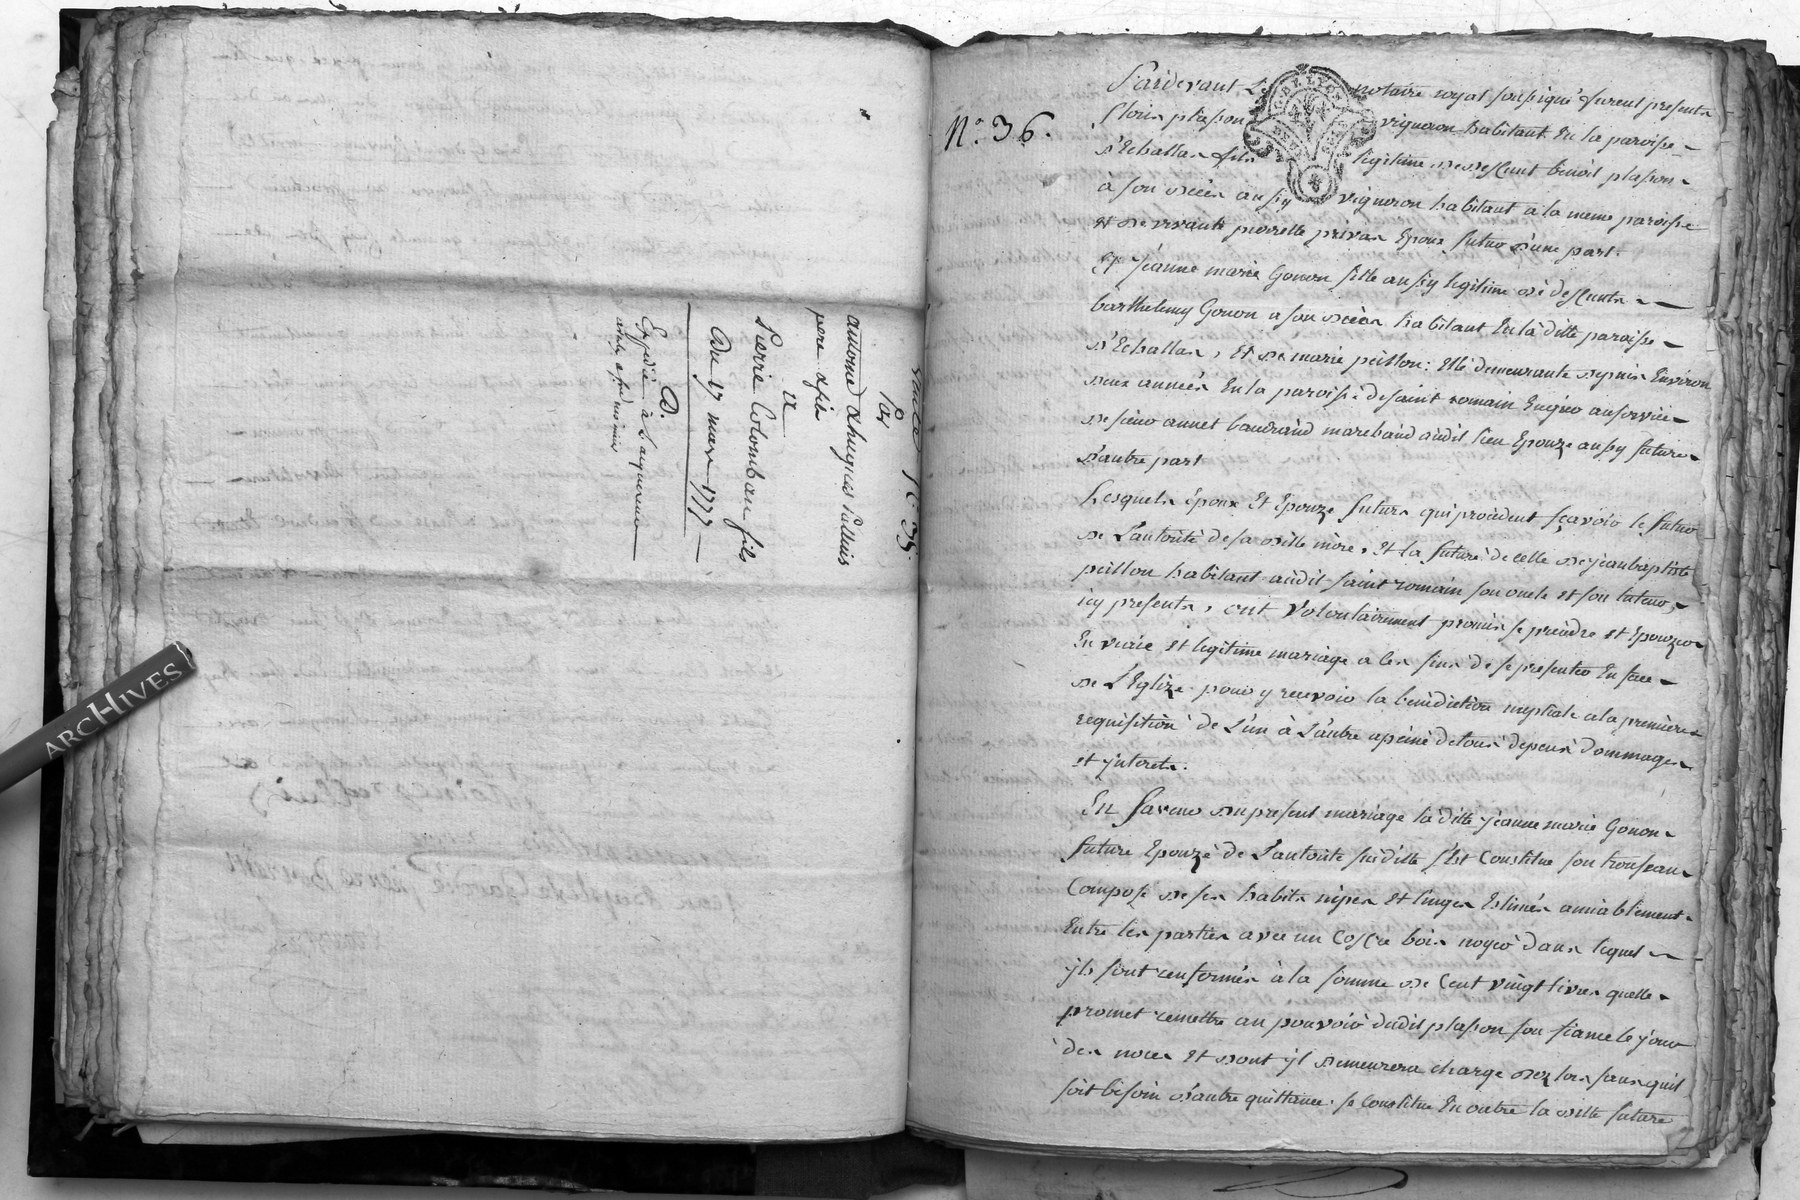 Vente N.° 35.
Par
antoine & hugues Palluis
pere & fils
a
Pierre Colomban fils
Du 17 mars 1777
D.
Expédiée à L'acquereur
ARCHIVES
N.° 36.
Pardevant Le notaire royal soussigné furent presents
plasson vigneron habitant En la paroisse
d'Echallas fils legitime de deffunt benoit plasson
à son deces aussy vigneron habitant a la meme paroisse
Et de vivante pierrette privas Epoux futur d'une part.
Et jeanne marie Gonon fille aussy legitime de deffunts
barthelemy Gonon a son deces habitant En la ditte paroisse
d'Echallas, Et de marie peillon: Elle demeurante depuis Environ
deux années En la paroisse de saint romain Engier au service
de sieur annet baudrand marchand audit lieu Epouze aussy future
d'autre part
Lesquels époux Et Epouze futurs qui procédent sçavoir le futur
de L'autorité de sa ditte mère, Et la future de celle de jean baptiste
peillon habitant audit saint romain son oncle et son tuteur,
icy presents, ont Volontairement promis se prendre et Epouzer
En vraie et legitime mariage a les fins de se presenter En face
de L'Eglize pour y recevoir la benediction nuptiale a la premiere
requisition de L'un à L'autre a peine de tous depens dommages
et jnterets.
En faveur du present mariage la ditte jeanne marie Gonon
future Epouze de L'autorité susditte s'Est Constitué son trousseau
Composé de ses habits nipes Et linges Estimés amiablement
Entre les parties avec un Coffre bois noyer dans lequel
ils sont renfermés à la somme de Cent vingt livres quelle
promet remettre au pouvoir dudit plasson son fiance le jour
des noces Et dont jl demeurera charge dez lors sans quil
soit besoin d'autre quittance. se Constitue En outre la ditte future